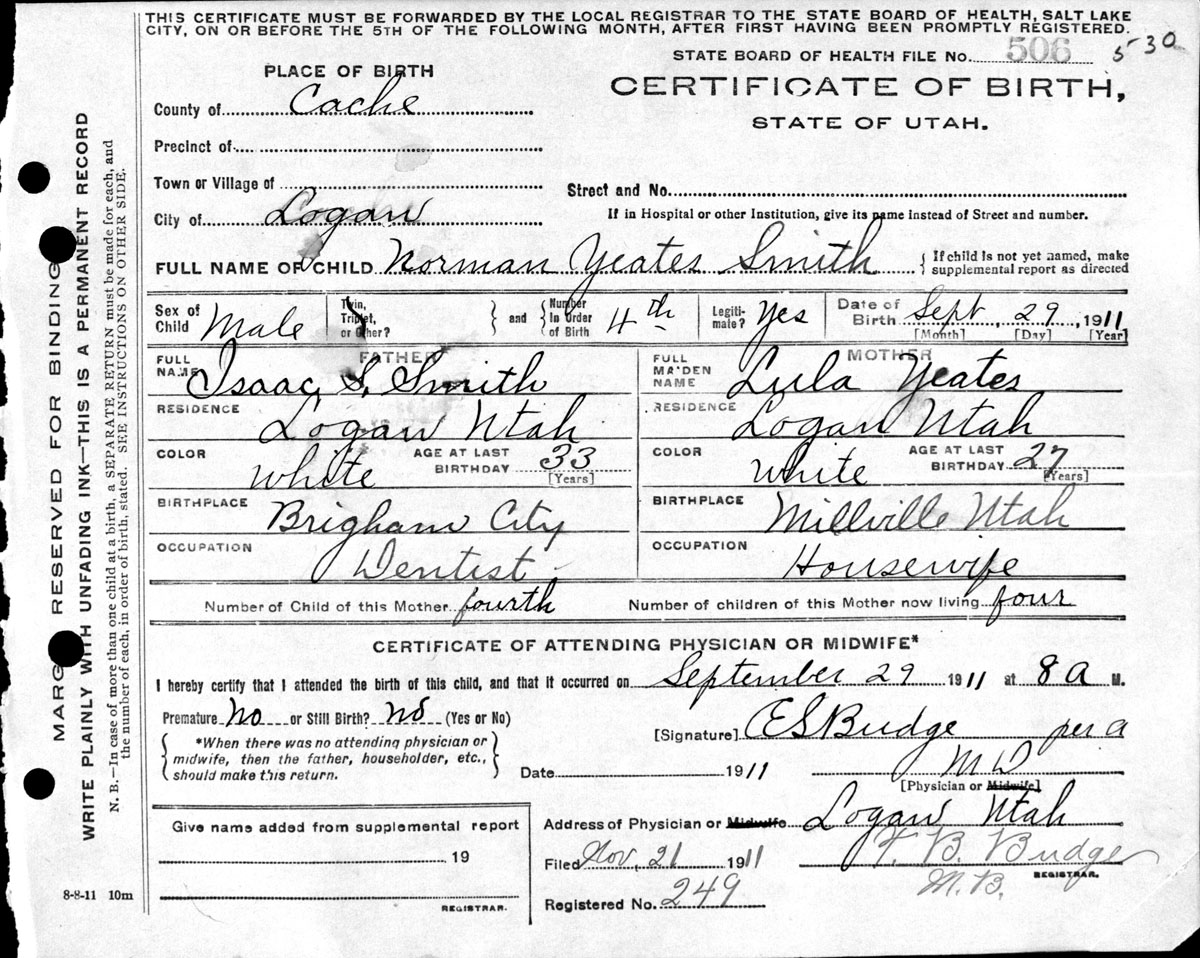 THIS CERTIFICATE MUST BE FORWARDED BY THE LOCAL REGISTRAR TO THE STATE BOARD OF HEALTH, SALT LAKE
CITY, ON OR BEFORE THE 5TH OF THE FOLLOWING MONTH, AFTER FIRST HAVING BEEN PROMPTLY REGISTERED.
STATE BOARD OF HEALTH FILE No. 506 530
PLACE OF BIRTH
CERTIFICATE OF BIRTH,
STATE OF UTAH.
County of Cache
Precinct of
Town or Village of
Street and No.
City of Logan
If in Hospital or other Institution, give its name instead of Street and number.
FULL NAME OF CHILD Norman Yeates Smith { If child is not yet named, make
supplemental report as directed
Sex of Child Male Twin, Triplet, or Other? } and { Number In Order of Birth 4th Legiti-mate? Yes Date of Birth Sept, 29, 1911
[Month] [Day] [Year]
FATHER MOTHER
FULL NAME Isaac S. Smith FULL MAIDEN NAME Lula Yeates
RESIDENCE Logan Utah RESIDENCE Logan Utah
COLOR white AGE AT LAST BIRTHDAY 33 [Years] COLOR White AGE AT LAST BIRTHDAY 27 [Years]
BIRTHPLACE Brigham City BIRTHPLACE Millville Utah
OCCUPATION Dentist OCCUPATION Housewife
Number of Child of this Mother fourth Number of children of this Mother now living four
CERTIFICATE OF ATTENDING PHYSICIAN OR MIDWIFE*
I hereby certify that I attended the birth of this child, and that it occurred on September 29 1911 at 8 a M.
Premature No or Still Birth? no (Yes or No)
[Signature] ES Budge per a
*When there was no attending physician or
midwife, then the father, householder, etc.,
should make this return.
Date 1911 M D
[Physician or Midwife]
Give name added from supplemental report
19
REGISTRAR.
Address of Physician or Midwife Logan Utah
Filed Nov, 21 1911 T. B. Budge
REGISTRAR.
Registered No. 249 M.D.
8-8-11 10m
MARGIN RESERVED FOR BINDING
WRITE PLAINLY WITH UNFADING INK—THIS IS A PERMANENT RECORD
N. B.—In case of more than one child at a birth, a SEPARATE RETURN must be made for each, and
the number of each, in order of birth, stated. SEE INSTRUCTIONS ON OTHER SIDE.